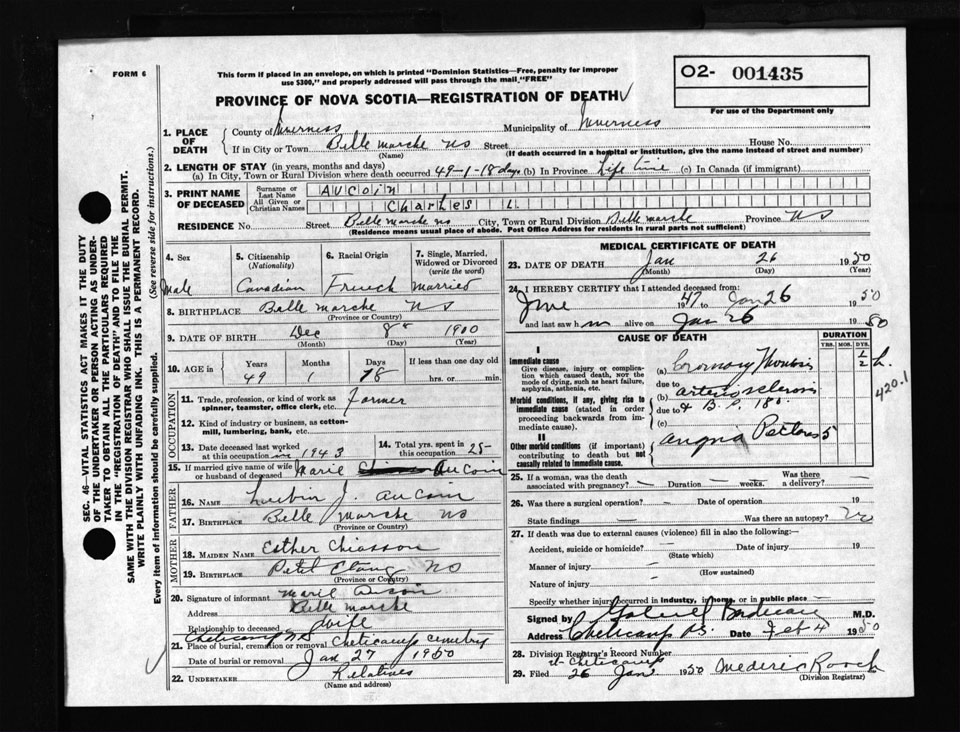 FORM 6
This form if placed in an envelope, on which is printed "Dominion Statistics—Free, penalty for improper
use $300," and properly addressed will pass through the mail, "FREE"
O2- 001435
For use of the Department only
PROVINCE OF NOVA SCOTIA—REGISTRATION OF DEATH
1. PLACE OF DEATH
County of Inverness Municipality of Inverness
If in City or Town Belle marche NS Street House No.
(Name) (If death occurred in a hospital or institution, give the name instead of street and number)
2. LENGTH OF STAY (in years, months and days)
(a) In City, Town or Rural Division where death occurred 49-1-18 days (b) In Province Life time (c) In Canada (if immigrant)
3. PRINT NAME OF DECEASED
Surname or Last Name AUCoin
All Given or Christian Names Charles L
RESIDENCE No. Street Belle marche NS City, Town or Rural Division Belle marche Province NS
(Residence means usual place of abode. Post Office Address for residents in rural parts not sufficient)
4. Sex
5. Citizenship (Nationality)
6. Racial Origin
7. Single, Married, Widowed or Divorced (write the word)
Male Canadian French Married
8. BIRTHPLACE Belle marche NS
(Province or Country)
9. DATE OF BIRTH Dec 8 1900
(Month) (Day) (Year)
10. AGE in Years Months Days If less than one day old
49 1 18 hrs. or min.
OCCUPATION
11. Trade, profession, or kind of work as
spinner, teamster, office clerk, etc. Farmer
12. Kind of industry or business, as cotton-
mill, lumbering, bank, etc.
13. Date deceased last worked
at this occupation in 1943
14. Total yrs. spent in
this occupation 25-
15. If married give name of wife
or husband of deceased Marie AuCoin
FATHER
16. NAME Lubin J. AuCoin
17. BIRTHPLACE Belle Marche NS
(Province or Country)
MOTHER
18. MAIDEN NAME Esther Chiasson
19. BIRTHPLACE Petit Etang NS
(Province or Country)
20. Signature of informant Marie Aucoin
Address Belle marche
Relationship to deceased Wife
Cheticamp NS
21. Place of burial, cremation or removal Cheticamp cemetry
Date of burial or removal Jan 27 1950
22. UNDERTAKER Relatives
(Name and address)
MEDICAL CERTIFICATE OF DEATH
23. DATE OF DEATH Jan 26 1950
(Month) (Day) (Year)
24. I HEREBY CERTIFY that I attended deceased from:
June 1947 to Jan 26 1950
and last saw him alive on Jan 26 1950
CAUSE OF DEATH
DURATION
YRS. MOS. DYS.
I
Immediate cause
Give disease, injury or complica-
tion which caused death, not the
mode of dying, such as heart failure,
asphyxia, asthenia, etc.
(a) Coronary Thrombosis 1/2 h.
due to
Morbid conditions, if any, giving rise to
immediate cause (stated in order
proceeding backwards from im-
mediate cause).
(b) arteriosclerosis
due to & B.P. 180.
(c)
420.1
II
Other morbid conditions (if important)
contributing to death but not
causally related to immediate cause.
angina Pectoris 5
25. If a woman, was the death
associated with pregnancy? — Duration — weeks. Was there
a delivery? —
26. Was there a surgical operation? — Date of operation 19
State findings — Was there an autopsy? No
27. If death was due to external causes (violence) fill in also the following:—
Accident, suicide or homicide? — Date of injury 19
(State which)
Manner of injury —
(How sustained)
Nature of injury —
Specify whether injury occurred in industry, in home, or in public place —
Signed by Gabriel Boudreau M.D.
Address Cheticamp NS. Date Feb 4 1950
28. Division Registrar's Record Number
Cheticamp
29. Filed 26 Jan 1950 Mederic Roach
(Division Registrar)
SEC. 46—VITAL STATISTICS ACT MAKES IT THE DUTY
OF THE UNDERTAKER OR PERSON ACTING AS UNDER-
TAKER TO OBTAIN ALL THE PARTICULARS REQUIRED
IN THE "REGISTRATION OF DEATH" AND TO FILE THE
SAME WITH THE DIVISION REGISTRAR WHO SHALL ISSUE THE BURIAL PERMIT.
WRITE PLAINLY WITH UNFADING INK. THIS IS A PERMANENT RECORD.
Every item of information should be carefully supplied. (See reverse side for instructions.)